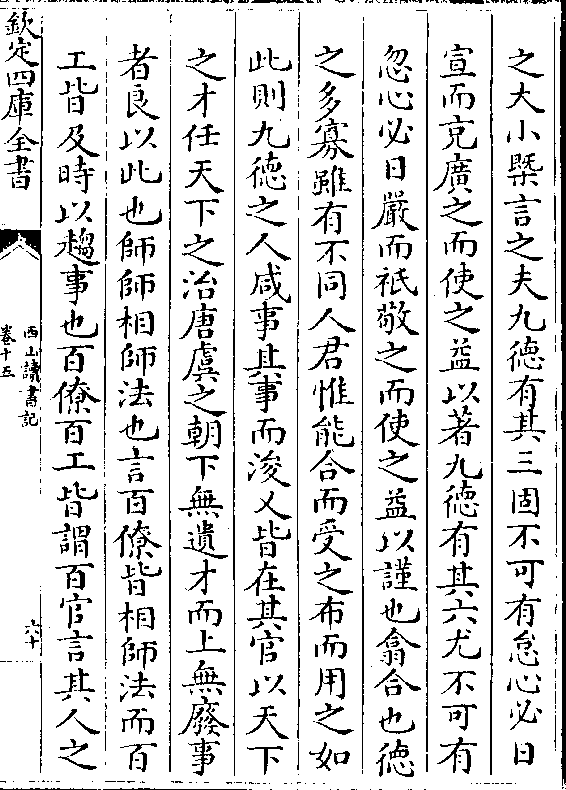 之大小槩言之夫九德有其三固不可有怠心必日
宣而克廣之而使之益以著九德有其六尤不可有
忽心必日嚴而祇敬之而使之益以謹也翕合也德
之多寡雖有不同人君惟能合而受之布而用之如
此則九德之人咸事其事而浚乂皆在其官以天下
之才任天下之治唐虞之朝下無遺才而上無廢事
者良以此也師師相師法也言百僚皆相師法而百
工皆及時以趨事也百僚百工皆謂百官言其人之
欽定四庫全書
西山讀書記
卷十五
六十